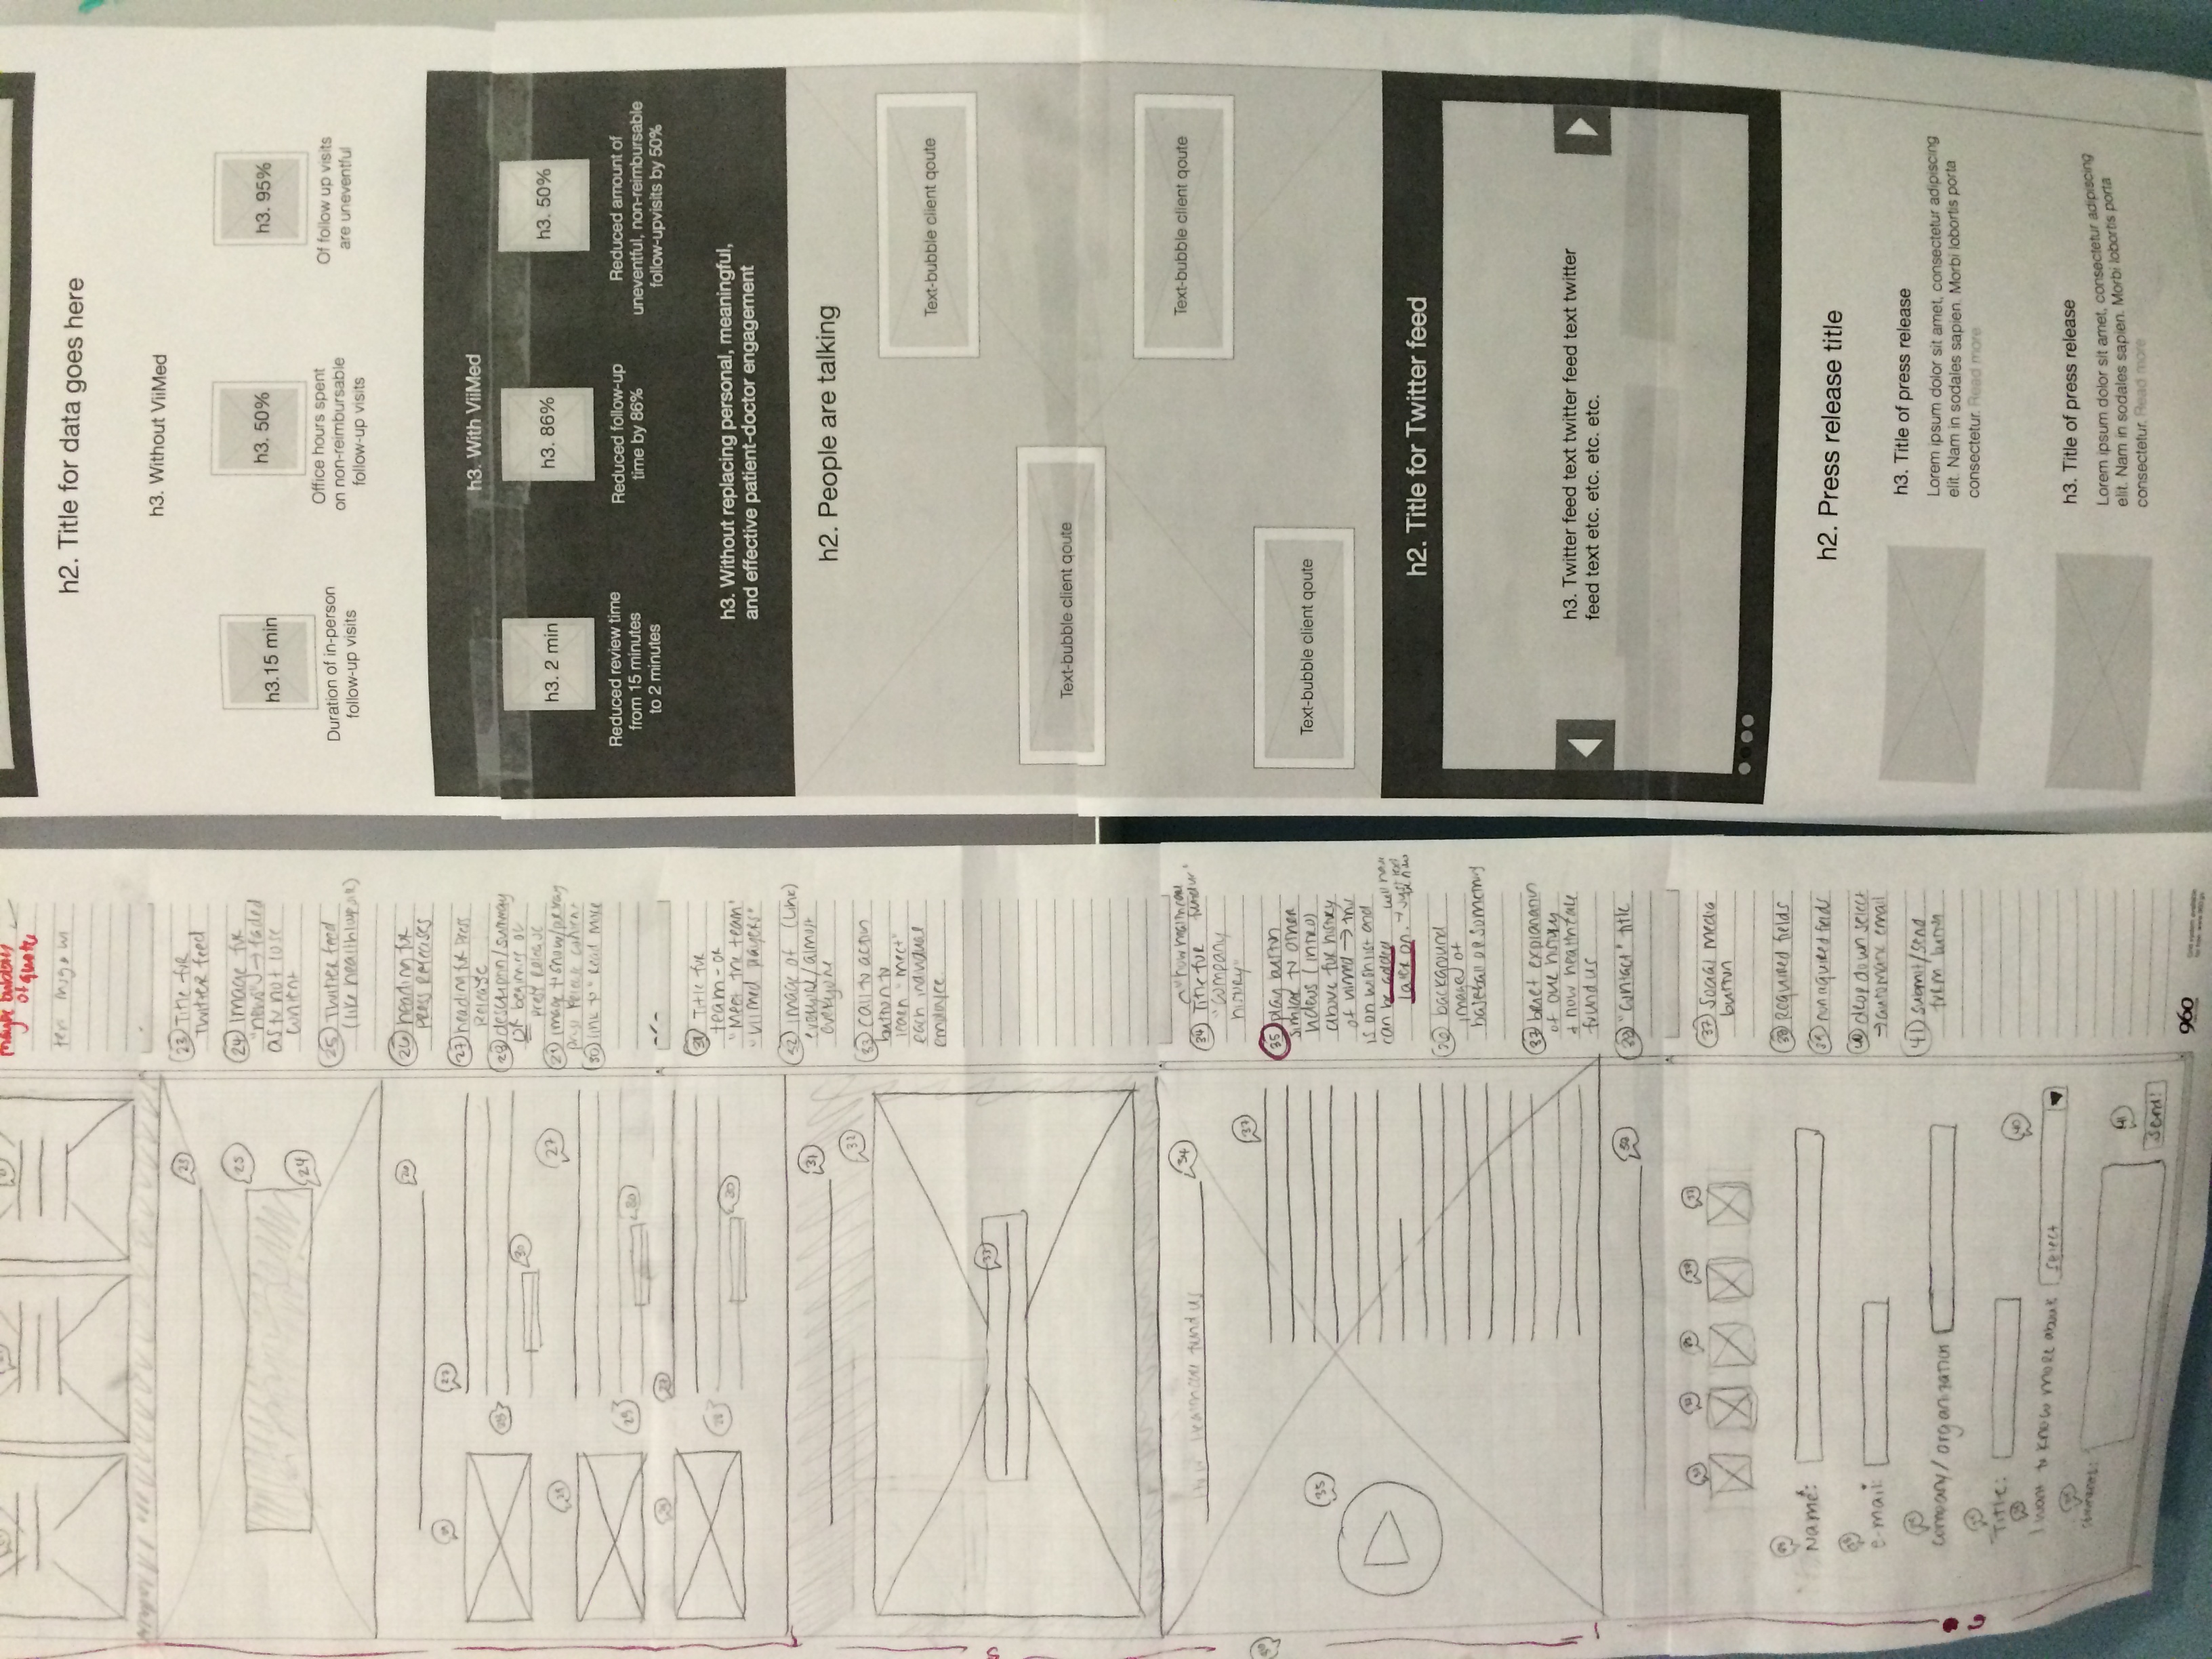 maybe bubbles
of quote
23 Title for
Twitter feed
24 Image for
"news" → faded
as to not lose
content
25 Twitter feed
(like
26 heading for
press releases
27 heading for press
release
28 description/summary
or beginning of
press release
29 image to show/portray
press release content
30 link to "Read more
31 Title for
team - or
"Meet the team"
"viimed players"
32 image of (link)
everyone/almost
everyone
33 call to action
button to
learn "meet"
each individual
employee
"how healthcare
found us"
34 Title for
"company
history"
35 play button
similar to other
videos (intro)
above for history
of viimed → this
is on wishlist and
can be added
later on.
36 background
image of
baseball or something
37 brief explanation
of our history
+ how healthcare
found us
38 "contact" title
37 Social media
button
38 Required fields
39 non required fields
40 drop down select
→ automatic email
41 submit/send
form button
960
23
25
24
26
29
27
28
30
29
27
28
30
29
27
28
30
31
32
33
healthcare found us
34
37
35
38
Name:
e-mail:
company/organization
Title:
I want to know more about
Select
40
comments:
41
Send!
h2. Title for data goes here
h3. Without ViiMed
h3.15 min
h3. 50%
h3. 95%
Duration of in-person
follow-up visits
Office hours spent
on non-reimbursable
follow-up visits
Of follow up visits
are uneventful
h3. With ViiMed
h3. 2 min
h3. 86%
h3. 50%
Reduced review time
from 15 minutes
to 2 minutes
Reduced follow-up
time by 86%
Reduced amount of
uneventful, non-reimbursable
follow-upvisits by 50%
h3. Without replacing personal, meaningful,
and effective patient-doctor engagement
h2. People are talking
Text-bubble client qoute
Text-bubble client qoute
Text-bubble client qoute
Text-bubble client qoute
h2. Title for Twitter feed
h3. Twitter feed text twitter feed text twitter
feed text etc. etc. etc. etc.
h2. Press release title
h3. Title of press release
Lorem ipsum dolor sit amet, consectetur adipiscing
elit. Nam in sodales sapien. Morbi lobortis porta
consectetur. Read more
h3. Title of press release
Lorem ipsum dolor sit amet, consectetur adipiscing
elit. Nam in sodales sapien. Morbi lobortis porta
consectetur. Read more